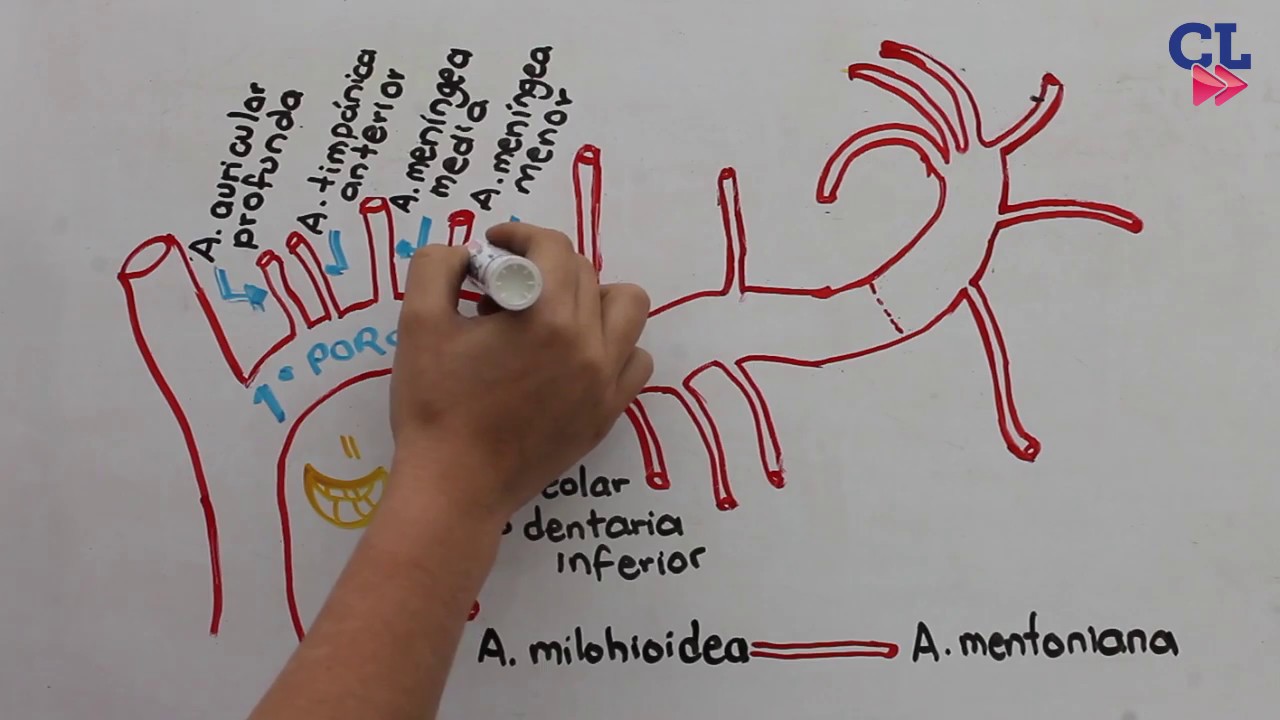 A. auricular
profunda
A. timpánica
anterior
A. meníngea
media
A. meníngea
menor
CL
1ª
dentaria
inferior
A. milohioidea
A. mentoniana